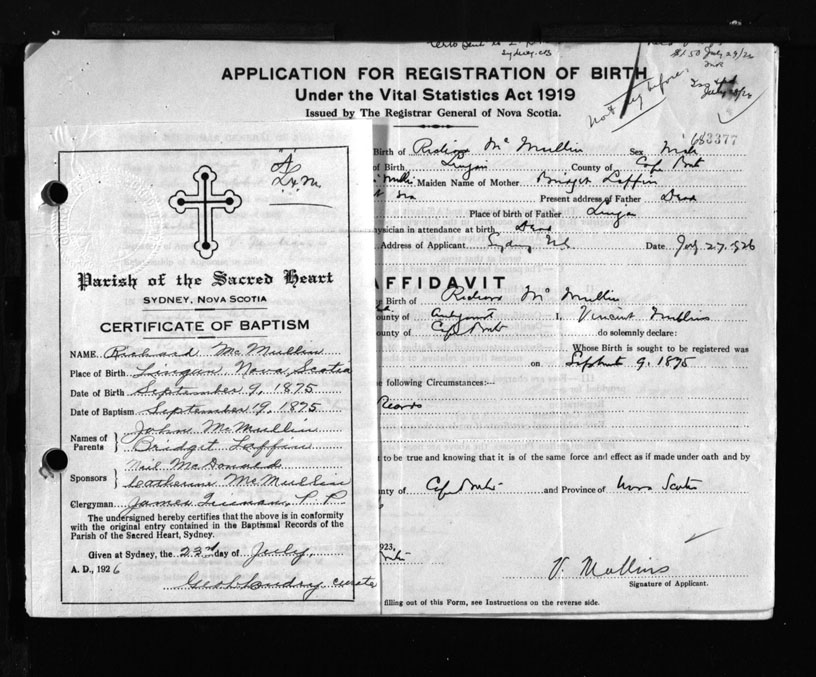 Sydney, CB
$1.50 July 29/26
APPLICATION FOR REGISTRATION OF BIRTH
not reg before.
Under the Vital Statistics Act 1919
Issued by The Registrar General of Nova Scotia.
683377
Birth of Richard Mc Mullin Sex Male
of Birth Lingan County of Cape Breton
Maiden Name of Mother Bridget Laffin
Present address of Father Dead
Place of birth of Father Lingan
ysician in attendance at birth Dead
Address of Applicant Sydney N.S. Date July 27, 1926
AFFIDAVIT
Birth of Richard Mc Mullin
ounty of I, Vincent Mullins
ounty of Cape Breton do solemnly declare:
Whose Birth is sought to be registered was
on September 9, 1875
e following Circumstances:—
Records
t to be true and knowing that it is of the same force and effect as if made under oath and by
nty of Cape Breton and Province of Nova Scotia
923,
V. Mullins
Signature of Applicant.
filling out of this Form, see Instructions on the reverse side.
Parish of the Sacred Heart
SYDNEY, NOVA SCOTIA
CERTIFICATE OF BAPTISM
NAME Richard McMullin
Place of Birth Lingan Nova Scotia
Date of Birth September 9, 1875
Date of Baptism September 19, 1875
Names of Parents John McMullin
Bridget Laffin
Sponsors Neil McDonald
Catherine McMullin
Clergyman James P. P.
The undersigned hereby certifies that the above is in conformity
with the original entry contained in the Baptismal Records of the
Parish of the Sacred Heart, Sydney.
Given at Sydney, the 23rd day of July,
A. D., 1926
Curate